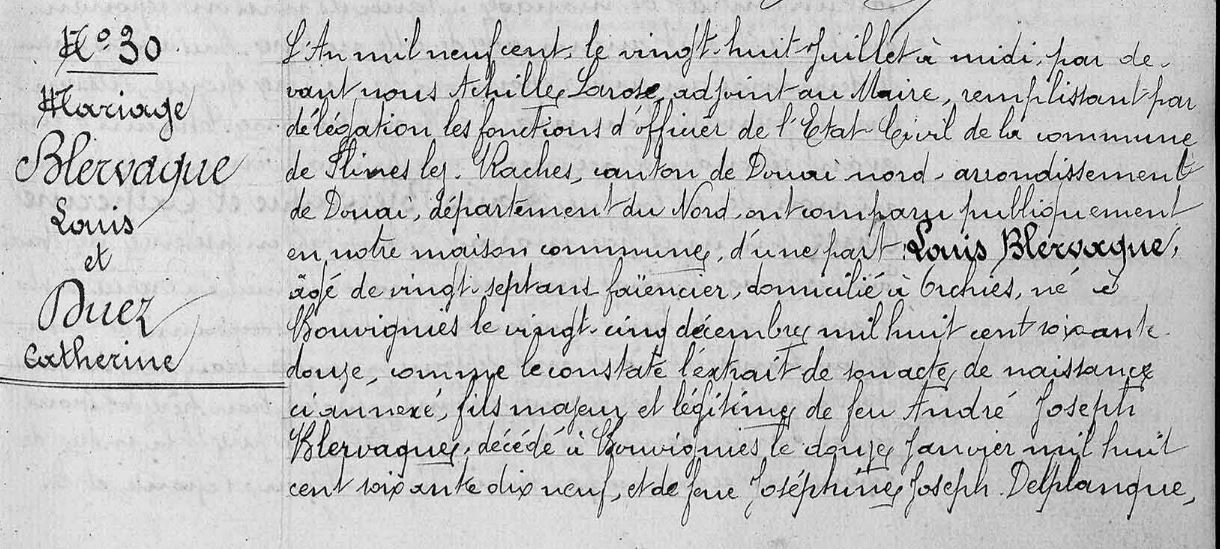 N° 30
Mariage
Blervaque
Louis
et
Duez
Catherine
L'An mil neuf cent, le vingt-huit Juillet à midi, par de-
vant nous Achille Larose, adjoint au Maire, remplissant par
délégation les fonctions d'officier de l'Etat-Civil de la commune
de Flines lez-Raches, canton de Douai nord, arrondissement
de Douai, département du Nord, ont comparu publiquement
en notre maison commune, d'une part : Louis Blervaque,
âgé de vingt-sept ans faïencier, domicilié à Orchies, né à
Bouvignies le vingt-cinq décembre mil huit cent soixante-
douze, comme le constate l'extrait de son acte de naissance
ci annexé, fils majeur et légitime de feu André Joseph
Blervaque, décédé à Bouvignies le douze Janvier mil huit
cent soixante dix neuf, et de feue Joséphine Joseph Delplanque,